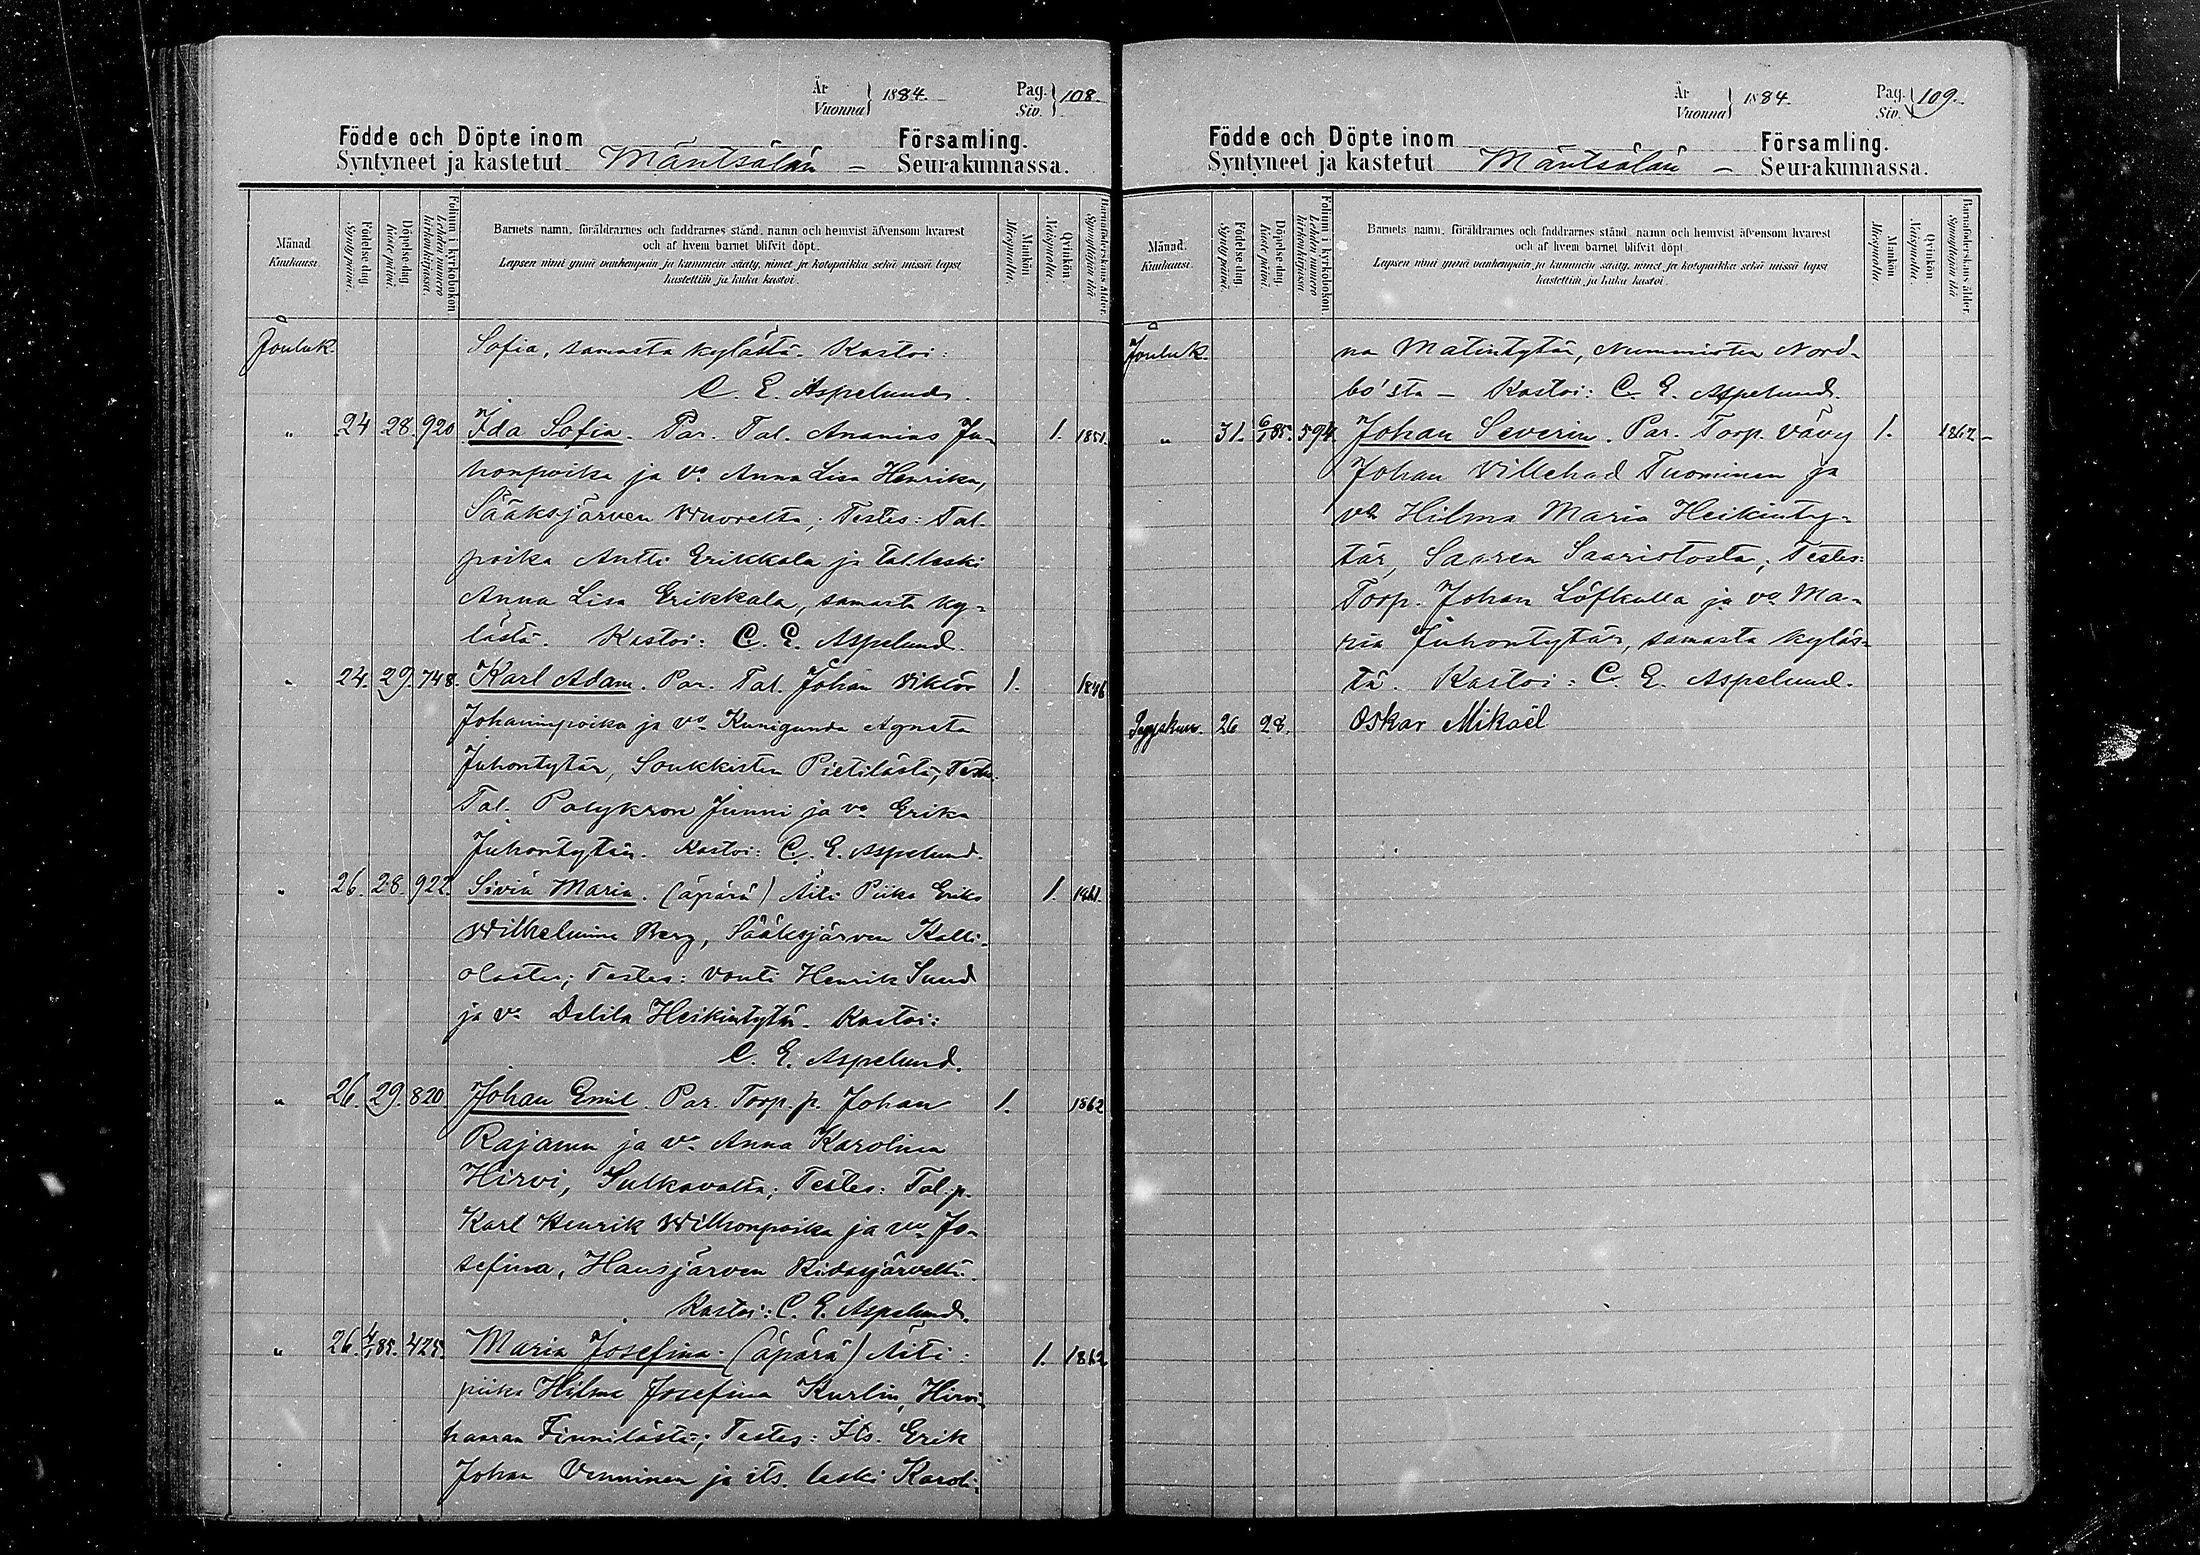 År
Vuonna} 1884.
Pag.
Siv.} 108.
Födde och Döpte inom
Syntyneet ja kastetut Mäntsälän – Församling.
Seurakunnassa.
Månad.
Kuukausi.
Födelse dag.
Syntymäpäivä.
Döpelse dag.
Kaste päivä.
Folium i kyrkoboken.
Lehden numero kirkonkirjassa.
Barnets namn, föräldrarnes och faddrarnes stånd, namn och hemvist äfvensom hvarest
och af hvem barnet blifvit döpt.
Lapsen nimi ynnä vanhempain ja kummein sääty, nimet ja kotopaikka sekä missä lapsi
kastettiin ja kuka kastoi.
Mankön.
Miespuolia.
Qvinkön.
Vaispuolia.
Barnaföderskans ålder.
Synnyttäjän ikä.
Jouluk. Sofia, samasta kylästä. Kastoi:
C. E. Aspelund.
" 24 28. 920 Ida Sofia. Par. Tal. Ananias Ju- 1. 1851.
honpoika ja vo Anna Lisa Henrika,
Sääksjärven Wuorelta; Testes: Tal.
poika Antti Erikkala ja tal. leski
Anna Lisa Erikkala, samasta ky-
lästä. Kastoi: C. E. Aspelund.
" 24. 29. 748. Karl Adam. Par. Tal. Johan Viktor 1. 1846
Johaninpoika ja vo Kunigunda Agneta
Juhontytär, Soukkisten Pietilästä; Testes:
Tal. Polykron Junni ja vo Erika
Juhontytär. Kastoi: C. E. Aspelund.
" 26. 28. 922. Siviä Maria. (äpärä) Äiti Piika Erika 1.
Wilhelmina Berg, Sääksjärven Kalli-
olasta; Testes: Vouti Henrik Sund
ja vo Delila Heikintytär. Kastoi:
C. E. Aspelund.
" 26. 29. 820 Johan Emil. Par. Torp. p. Johan 1. 1862
Rajanen ja vo Anna Karolina
Hirvi, Sulkavalta; Testes: Tal. p.
Karl Henrik Wilhonpoika ja vo Jo-
sefina, Hausjärven Ridasjärveltä.
Kastoi: C. E. Aspelund.
" 26. 4/1 85. 425. Maria Josefina. (äpärä) Äiti: 1. 1862
piika Hilma Josefina Kurlin, Hirvi-
haaran Finnilästä; Testes: Its. Erik
Johan Venninen ja its. leski Karoli-
År
Vuonna} 1884.
Pag.
Siv.} 109.
Födde och Döpte inom
Syntyneet ja kastetut Mäntsälän – Församling.
Seurakunnassa.
Månad.
Kuukausi.
Födelse dag.
Syntymäpäivä.
Döpelse dag.
Kaste päivä.
Folium i kyrkoboken.
Lehden numero kirkonkirjassa.
Barnets namn, föräldrarnes och faddrarnes stånd, namn och hemvist äfvensom hvarest
och af hvem barnet blifvit döpt.
Lapsen nimi ynnä vanhempain ja kummein sääty, nimet ja kotopaikka sekä missä lapsi
kastettiin ja kuka kastoi.
Mankön.
Miespuolia.
Qvinkön.
Vaispuolia.
Barnaföderskans ålder.
Synnyttäjän ikä.
Jouluk. na Matintytär, Nummisten Nord-
bo'sta – Kastoi: C. E. Aspelund.
" 31. 6/1 85. 594. Johan Severin. Par. Torp. vävy 1. 1862 –
Johan Villehad Tuominen ja
vo Hilma Maria Heikinty-
tär, Saaren Saaristosta; Testes:
Torp. Johan Löfkulla ja vo Ma-
ria Juhontytär, samasta kyläs-
tä. Kastoi: C. E. Aspelund.
Syyskuu. 26 28. Oskar Mikaël